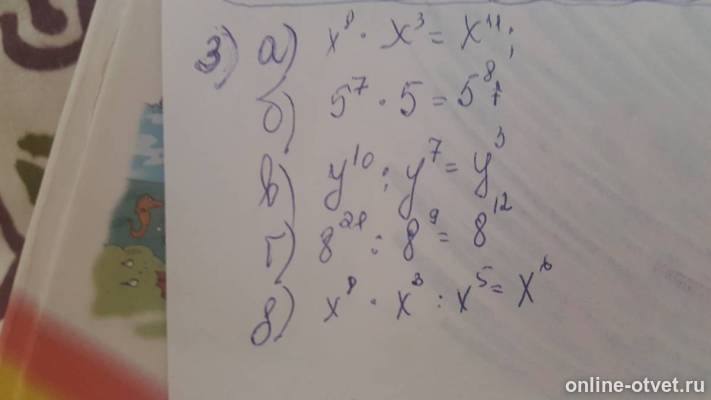 3) а) x⁸ · x³ = x¹¹;
б) 5⁷ · 5 = 5⁸
в) y¹⁰ : y⁷ = y³
г) 8²¹ : 8⁹ = 8¹²
д) x⁸ · x³ : x⁵ = x⁶
online-otvet.ru